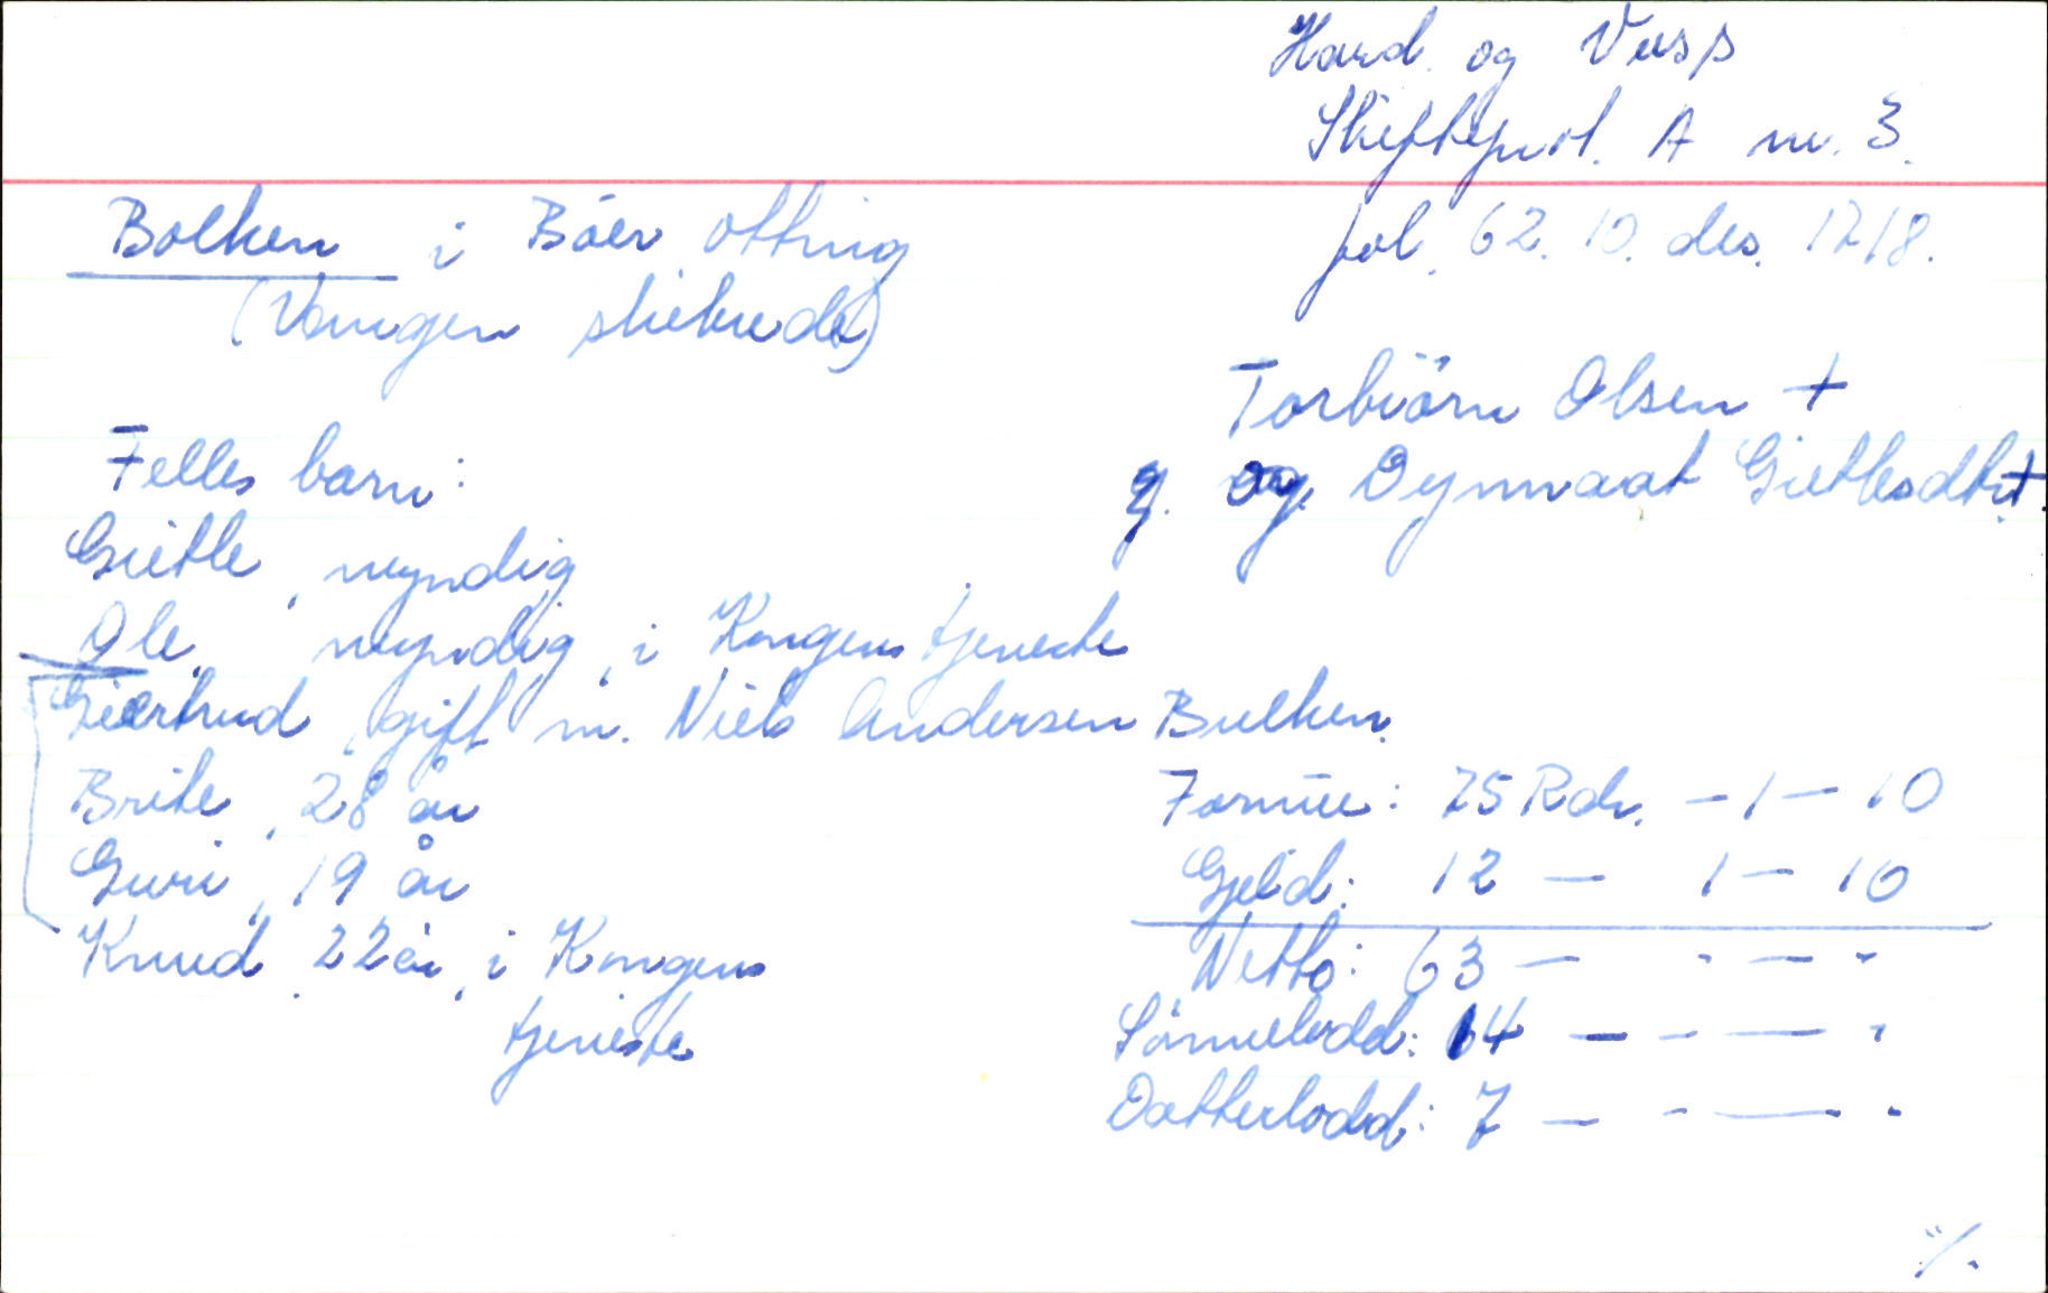 Hard. og Voss
Skifteprot. A nr. 3.
fol. 62. 10. des. 1718.
Bolken i Böer otting
(Vangen skibrede)
Torbiörn Olsen +
g. og. Dynnaat Gietlesdtr. +.
Felles barn:
Gietle, myndig
Ole, myndig, i Kongens tjeneste
Giertrud, gift m. Niels Andersen Bulken.
Brite, 28 år
Guri, 19 år
Knud, 22 år, i Kongens
tjeneste
Formue: 75 Rdr. - 1 - 10
Gjeld: 12 - 1 - 10
Netto: 63 - " - "
Sönnelodd: 14 - - - "
Datterlodd: 7 - - - "
"/.